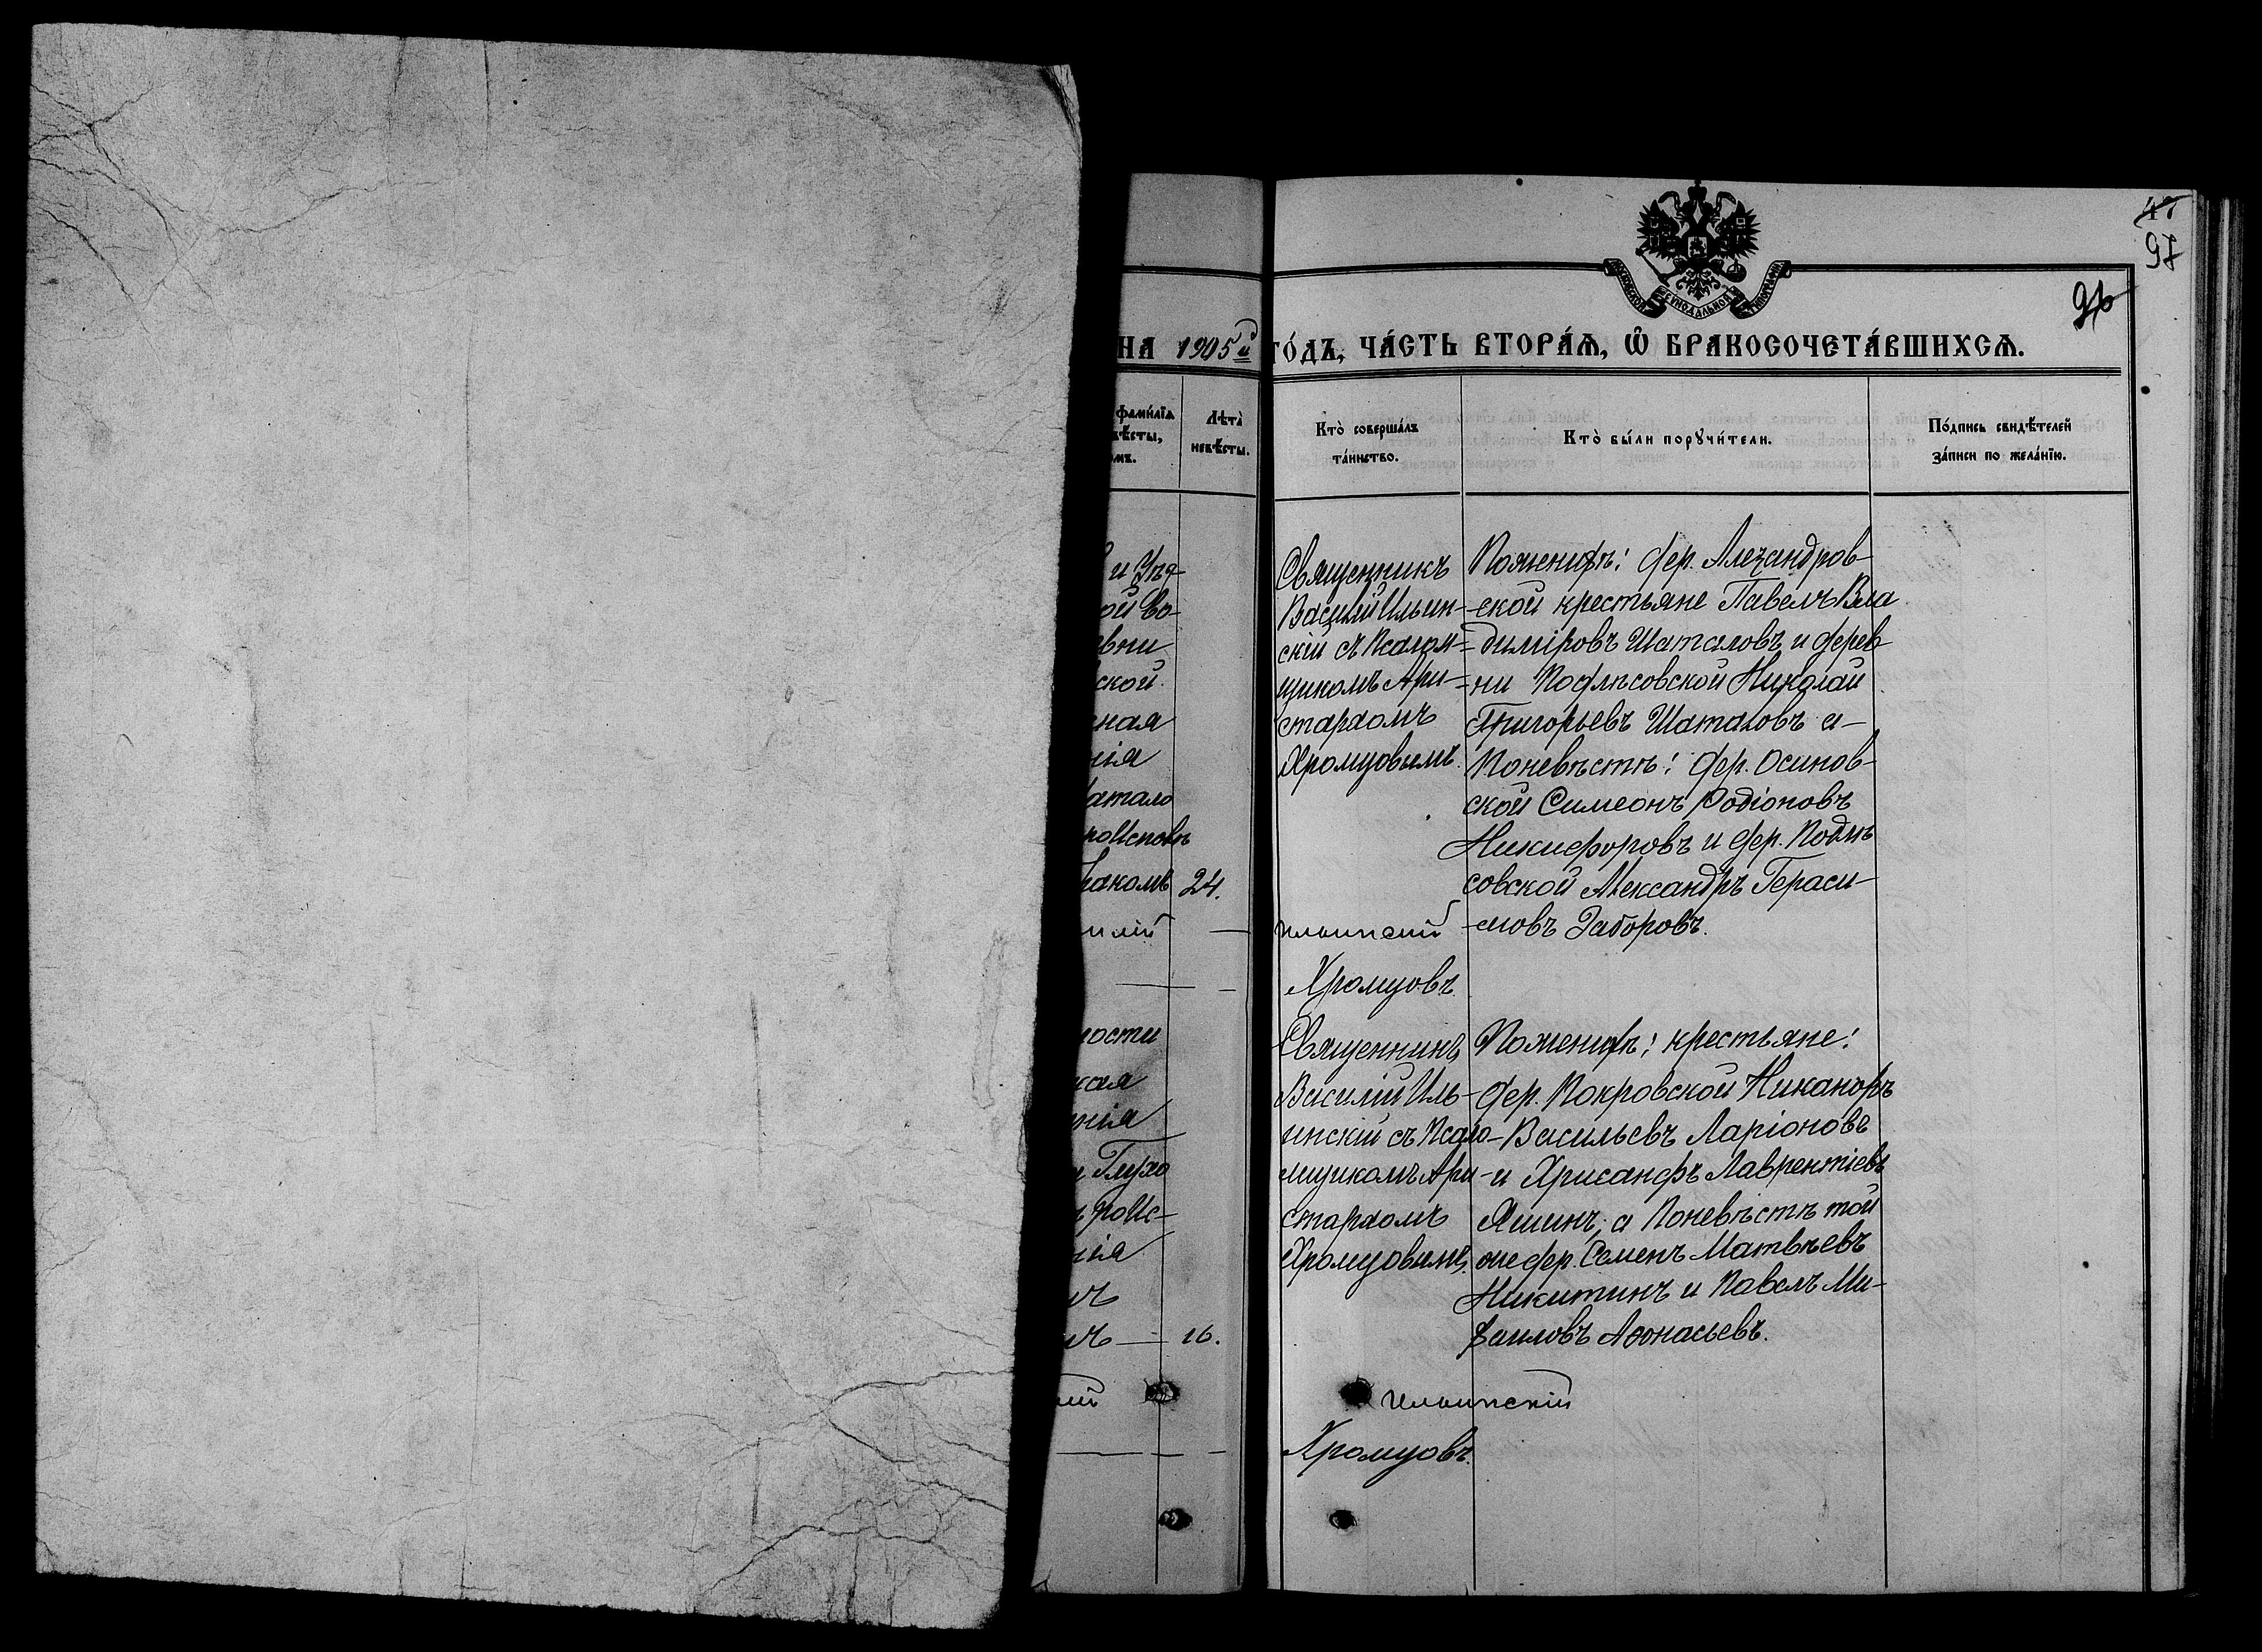 47
97
96
МОСКОВСКОЙ СѴНОДАЛЬНОЙ ТИПОГРАФІИ
НА 1905й ГО́ДЪ, ЧА́СТЬ ВТОРА́Ѧ, Ѽ БРАКОСОЧЕТА́ВШИХСѦ.
фамилїѧ
вѣсты,
омъ.
Лѣта̀
невѣ́сты.
Кто̀ соверша́лъ
та́инство.
Кто̀ бы́ли порꙋчи́тели.
По́дпись свидѣ́телей
за́писи по жела́нїю.
и Уѣз-
ой Во-
евни
ской
ная
нія
атало
роисповѣ
ракомъ 24.
илій
Священникъ
Василій Ильин-
скій съ Псалом-
щикомъ Ари-
стархомъ
Хромцовымъ.
Ильинскій
Хромцовъ.
По женихѣ: дер. Александров-
ской крестьяне Павелъ Вла
диміровъ Шаталовъ и дерев-
ни Подлѣсовской Николай
Григорьевъ Шаталовъ а-
По невѣстѣ: дер. Осинов-
ской Симеонъ Родіоновъ
Никифоровъ и дер. Подлѣ
совской Александръ Гераси-
мовъ Заборовъ.
ности
кая
нія
Глухо
ъ роис-
нія
мъ
мъ 16.
лій
Священникъ
Василій Иль-
инскій съ Псало-
мщикомъ Ари-
стархомъ
Хромцовымъ.
Ильинскій
Хромцовъ.
По женихѣ: крестьяне:
дер. Покровской Никаноръ
Васильевъ Ларіоновъ
и Хрисанфъ Лаврентіевъ
Яшинъ; а По невѣстѣ той
же дер. Семенъ Матвѣевъ
Никитинъ и Павелъ Ми-
хаиловъ Аѳонасьевъ.